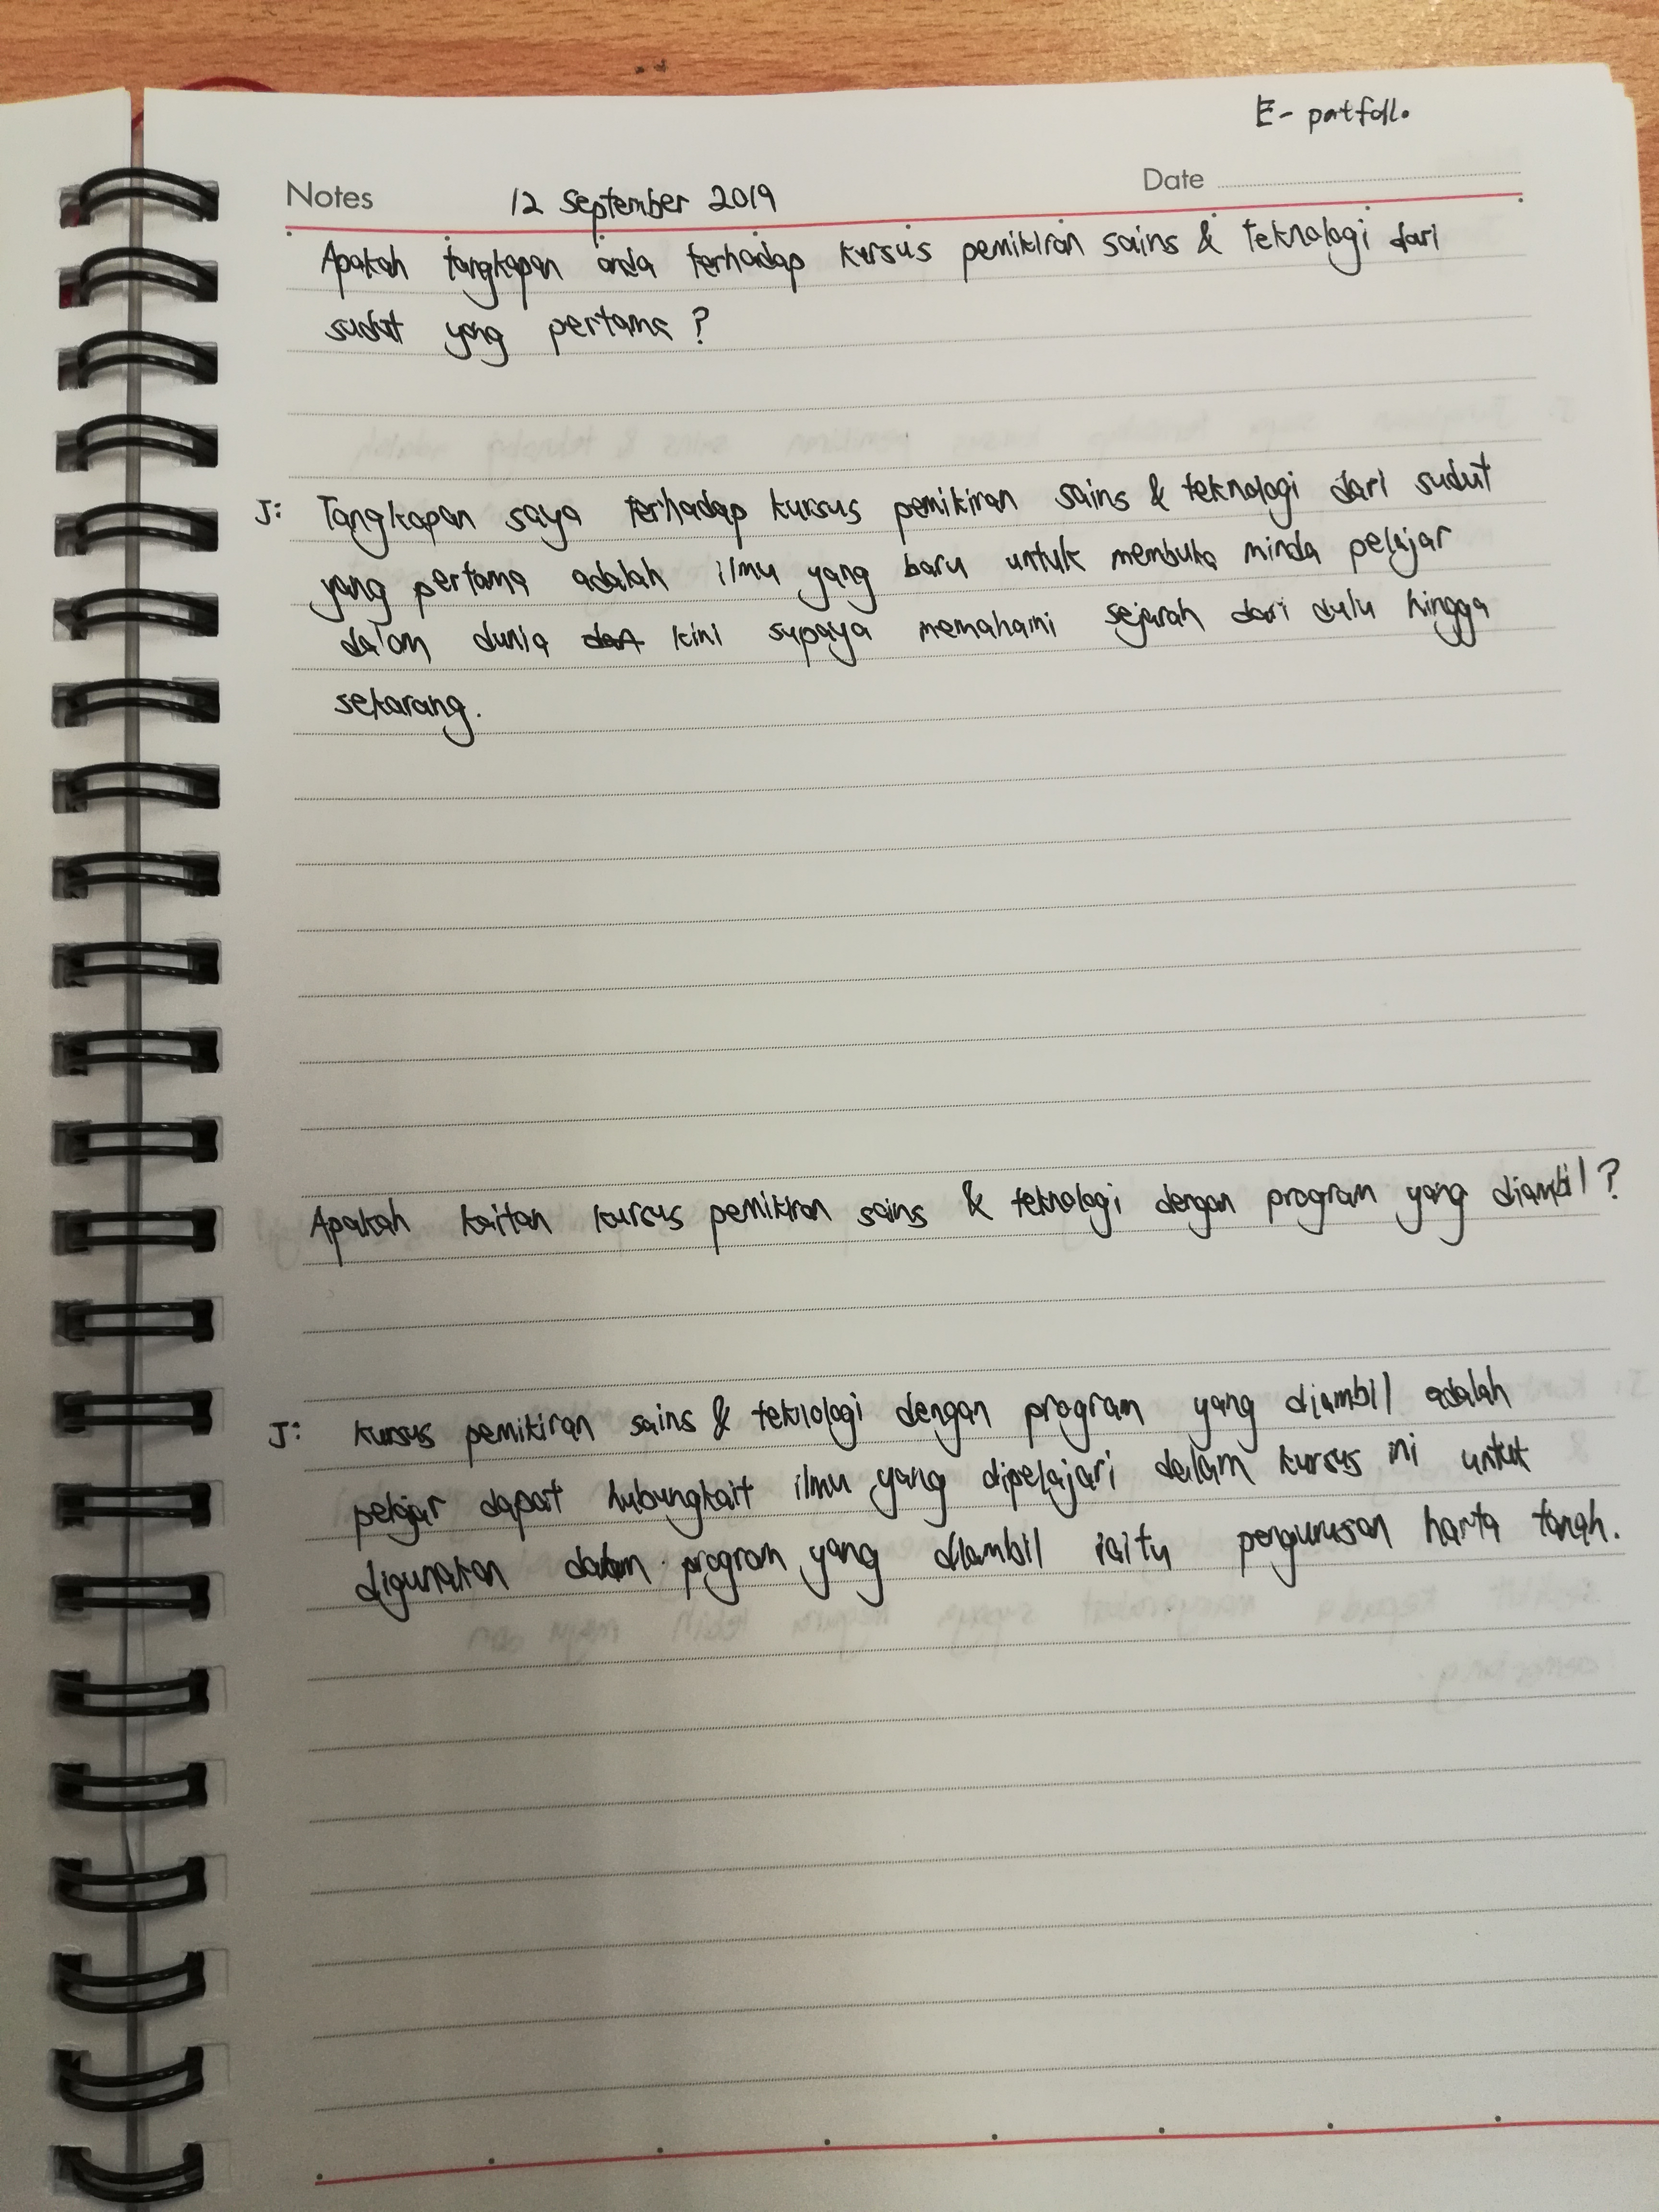 E- portfolio
Notes 12 september 2019 Date
Apakah tangkapan anda terhadap kursus pemikiran sains & teknologi dari
sudut yang pertama ?
J: Tangkapan saya terhadap kursus pemikiran sains & teknologi dari sudut
yang pertama adalah ilmu yang baru untuk membuka minda pelajar
dalam dunia kini supaya memahami sejarah dari dulu hingga
sekarang.
Apakah kaitan kursus pemikiran sains & teknologi dengan program yang diambil ?
J: kursus pemikiran sains & teknologi dengan program yang diambil adalah
pelajar dapat hubungkait ilmu yang dipelajari dalam kursus ini untuk
digunakan dalam program yang diambil iaitu pengurusan harta tanah.